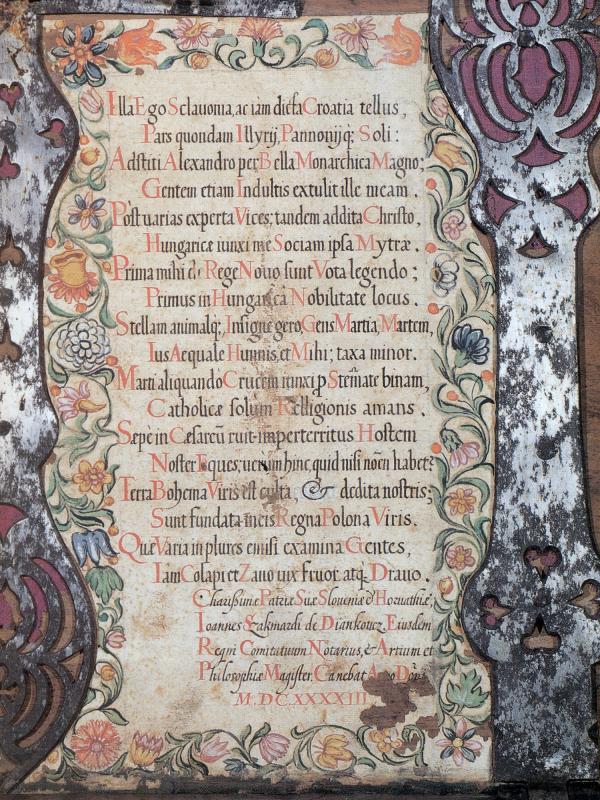 Illa Ego Sclavonia, ac iam dicta Croatia tellus,
Pars quondam Illyrij, Pannonijq; Soli:
Adstiti Alexandro per Bella Monarchica Magno;
Gentem etiam Indultis extulit ille meam.
Post varias experta Vices; tandem addita Christo,
Hungaricæ iunxi me Sociam ipsa Mytræ.
Prima mihi de Rege Novo sunt Vota legendo;
Primus in Hungarica Nobilitate locus.
Stellam animalq; Insigne gero Gens Martia, Martem,
Ius Aequale Hunnis, et Mihi; taxa minor.
Marti aliquando Crucem iunxi p Stemate binam,
Catholicæ solum Relligionis amans.
Sæpè in Cæsareū ruit imperterritus Hostem
Noster Eques, verum hinc quid nisi nomē habet?
Terra Bohema Viris est culta, & dedita nostris;
Sunt fundata incis Regna Polona Viris.
Quæ Varia in plures emisi examina Gentes,
Iam Colapi et Zavo vix fruor, atq Dravo.
Charissimæ Patriæ Suæ Sloveniæ d' Horvathiæ,
Ioannes Zakmardi de Diankovcz, Eiusdem
Regni Comitatuum Notarius, & Artium et
Philosophiæ Magister. Canebat Anno Dom̄
M.DCXXXXIII